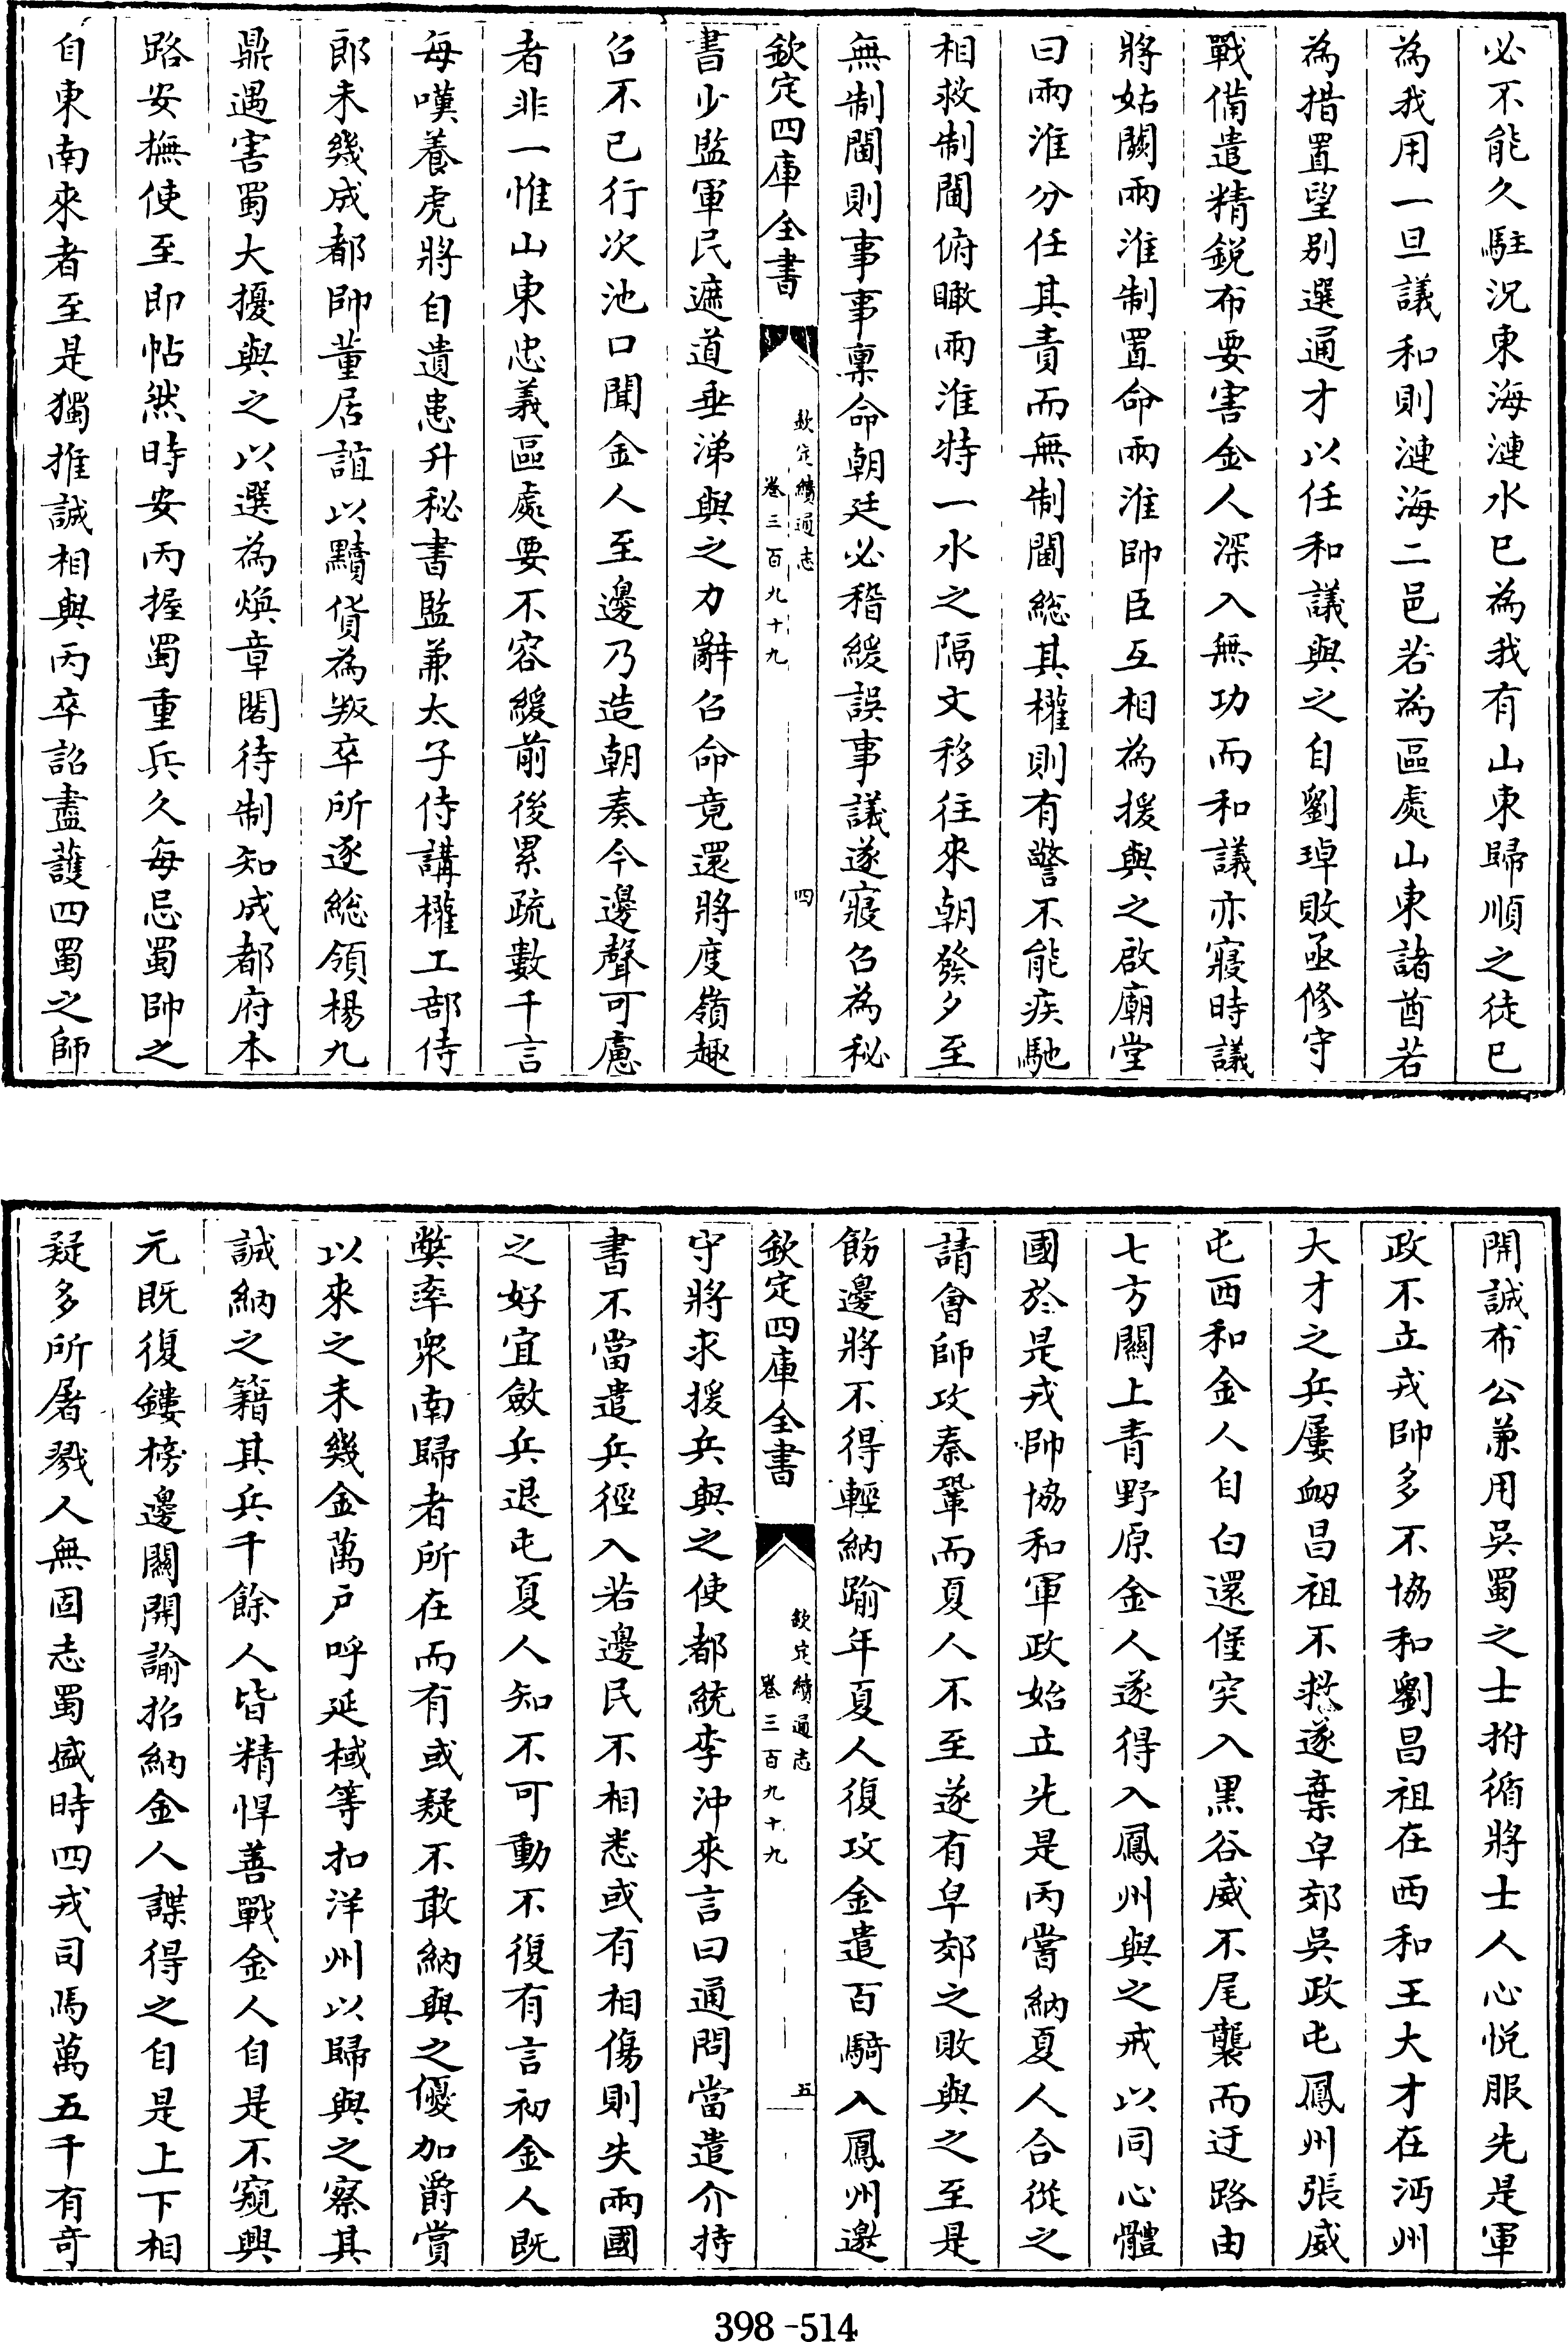 必不能久駐況東海漣水已為我有山東歸順之徒已
為我用一旦議和則漣海二邑若為區處山東諸酋若
為措置望别選通才以任和議與之自劉琸敗亟修守
戰備遣精鋭布要害金人深入無功而和議亦寢時議
將姑闕兩淮制置命兩淮帥臣互相為援與之啟廟堂
曰兩淮分任其責而無制閫総其權則有警不能疾馳
相救制閫俯瞰兩淮特一水之隔文移往來朝發夕至
無制閫則事事稟命朝廷必稽緩誤事議遂寢召為秘
欽定四庫全書
欽定續通志
卷三百九十九
四
書少監軍民遮道垂涕與之力辭召命竟還將度嶺趣
召不已行次池口聞金人至邊乃造朝奏今邊聲可慮
者非一惟山東忠義區處要不容緩前後累疏數千言
每嘆養虎將自遺患升秘書監兼太子侍講權工部侍
郎未幾成都帥董居誼以黷貨為叛卒所逐総領楊九
鼎遇害蜀大擾與之以選為煥章閣待制知成都府本
路安撫使至即帖然時安丙握蜀重兵久每忌蜀帥之
自東南來者至是獨推誠相與丙卒詔盡護四蜀之師
開誠布公兼用吳蜀之士拊循將士人心悦服先是軍
政不立戎帥多不協和劉昌祖在西和王大才在沔州
大才之兵屢衂昌祖不救遂棄皁郊吳政屯鳳州張威
屯西和金人自白還堡突入黑谷威不尾襲而迂路由
七方關上青野原金人遂得入鳳州與之戒以同心體
國於是戎帥協和軍政始立先是丙嘗納夏人合從之
請會師攻秦鞏而夏人不至遂有皁郊之敗與之至是
飭邊將不得輕納踰年夏人復攻金遣百騎入鳳州邀
欽定四庫全書
欽定續通志
卷三百九十九
五
守將求援兵與之使都統李沖來言曰通問當遣介持
書不當遣兵徑入若邊民不相悉或有相傷則失兩國
之好宜斂兵退屯夏人知不可動不復有言初金人既
弊率衆南歸者所在而有或疑不敢納與之優加爵賞
以來之未幾金萬户呼延棫等扣洋州以歸與之察其
誠納之籍其兵千餘人皆精悍善戰金人自是不窺興
元既復鏤榜邊關開諭招納金人諜得之自是上下相
疑多所屠戮人無固志蜀盛時四戎司馬萬五千有奇
398-514